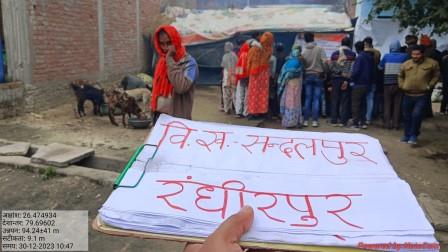 वि.ख.- सन्दलपुर
रंधीरपुर
अक्षांश: 26.474934
देशान्तर: 79.69602
उन्नयन: 94.24±41 m
सटीकता: 9.1 m
समय: 30-12-2023 10:47
Powered by NoteCam